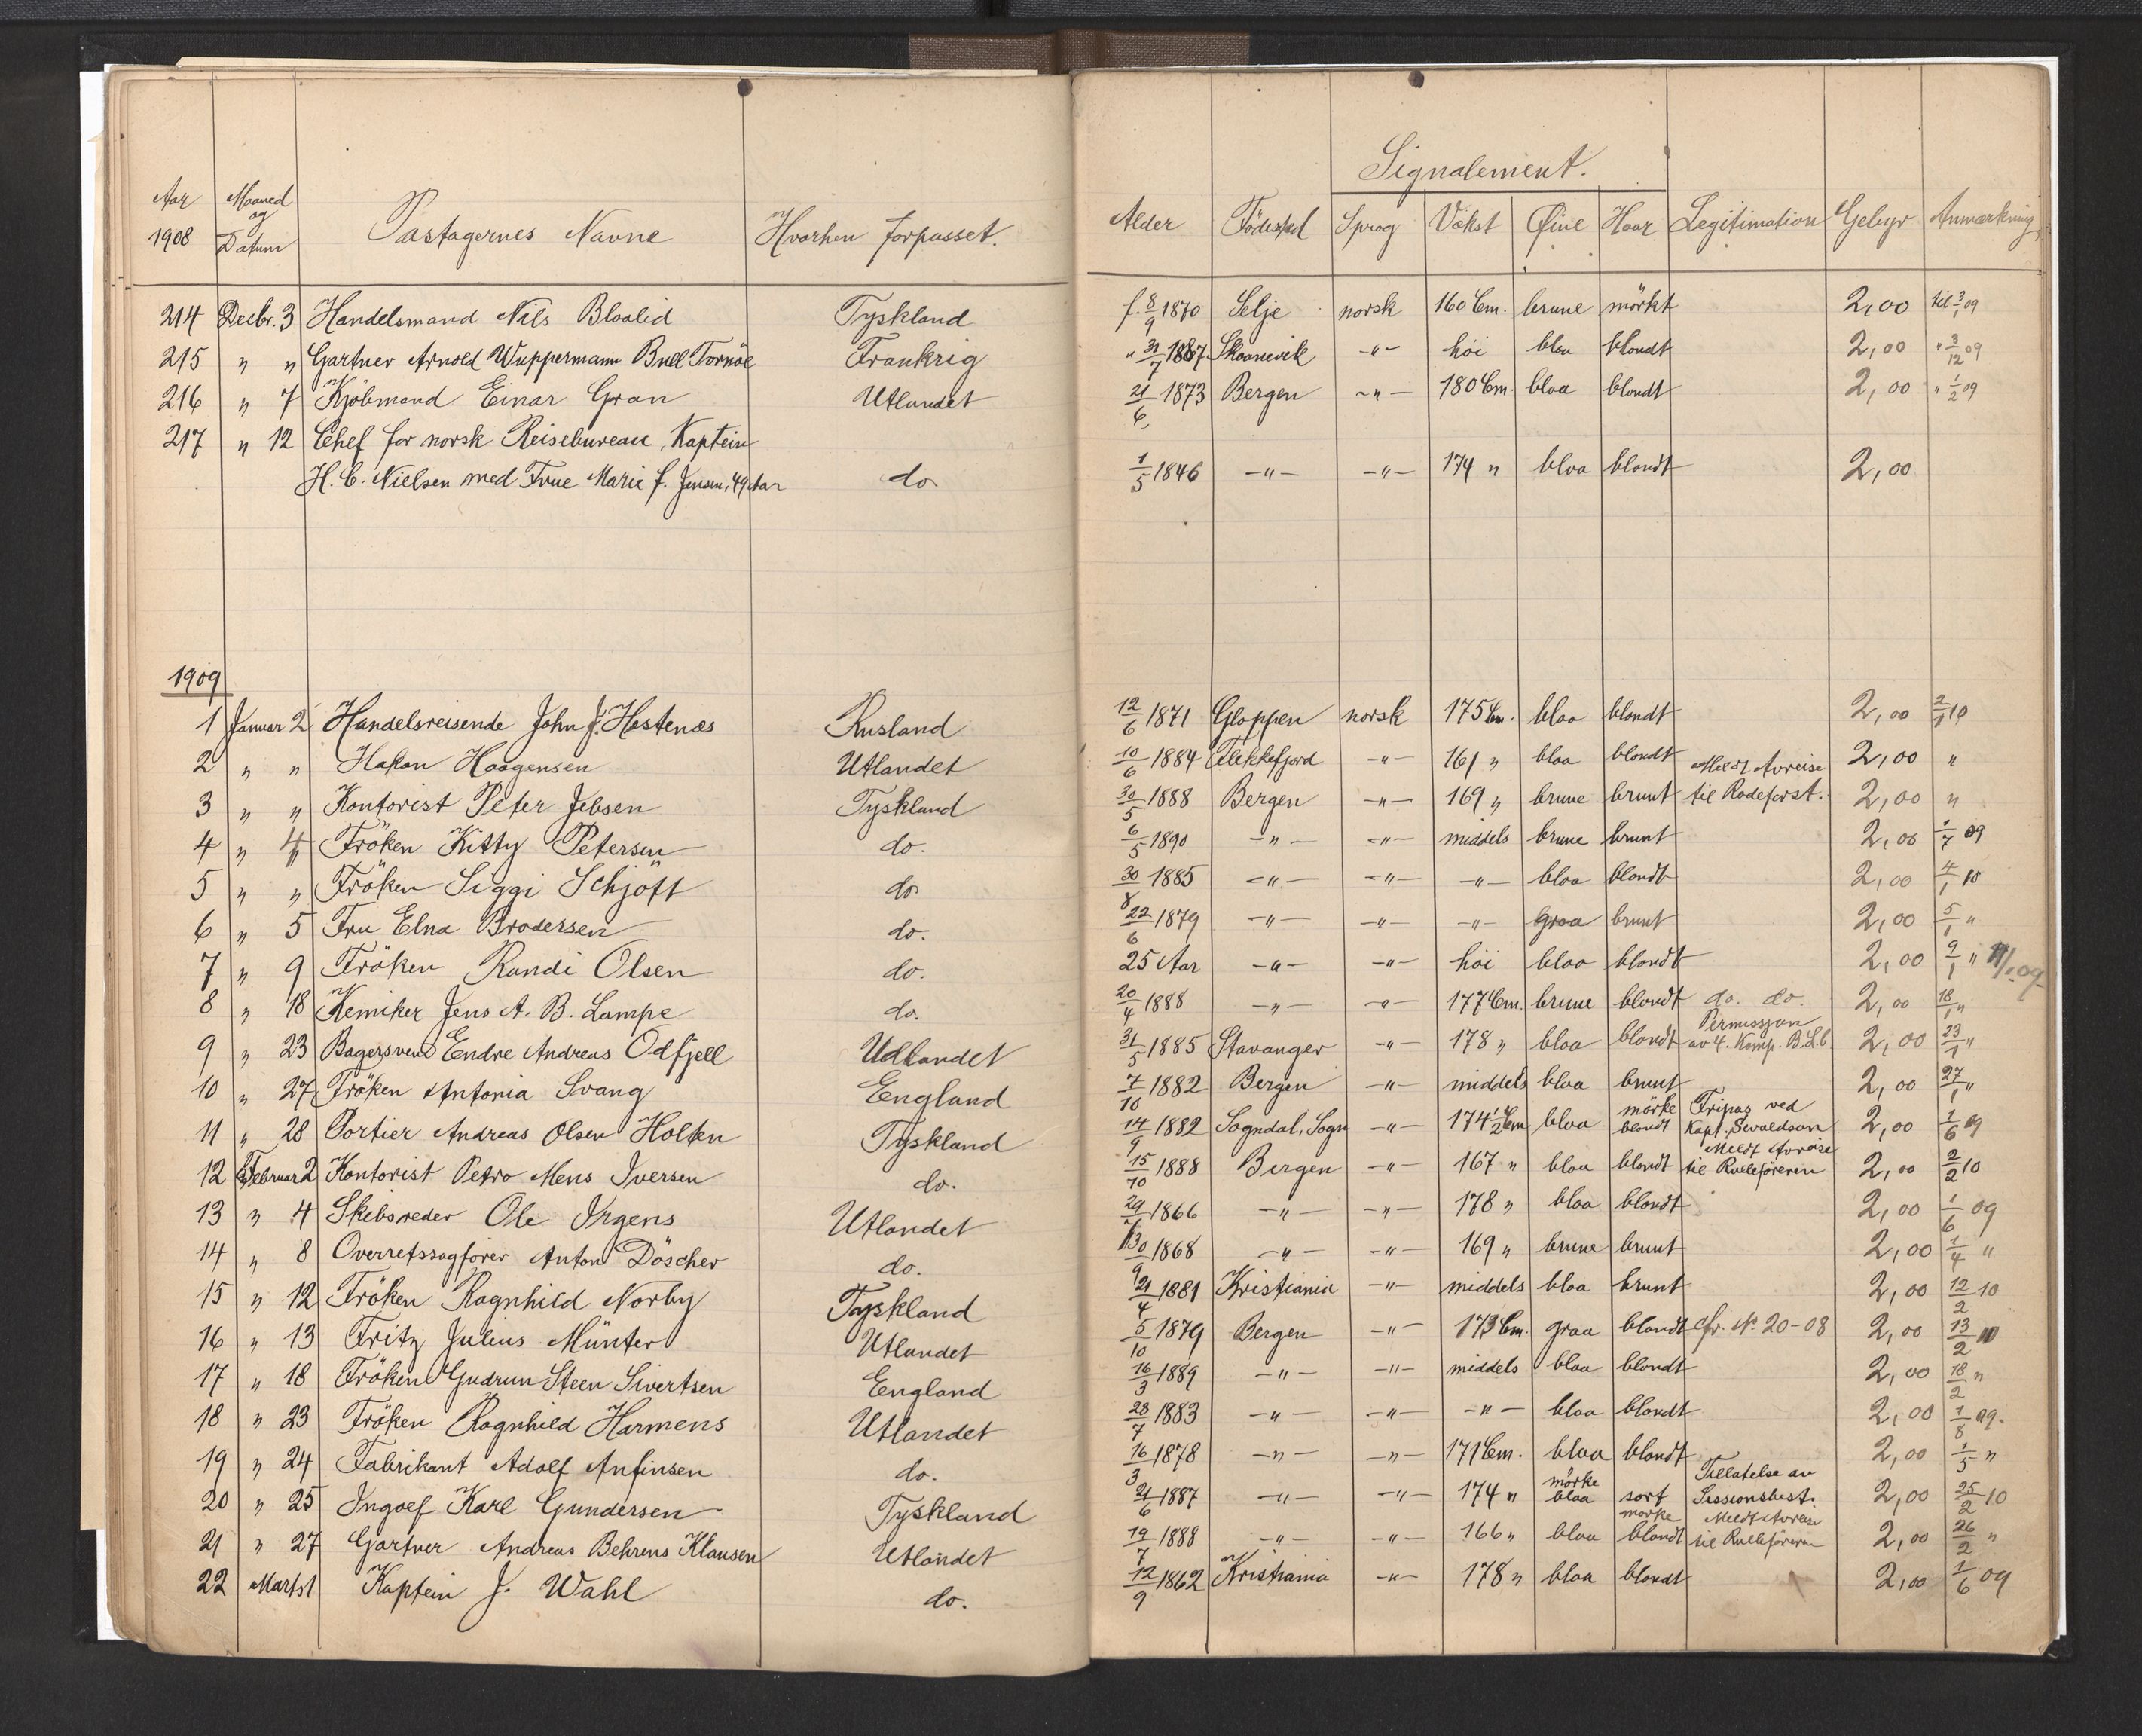 Aar 1908 Maaned og Datum Passagernes Navne Hvorhen forpasset.
214 Decbr. 3 Handelsmand Nils Blaalid Tyskland
215 " " Gartner Arnold Wuppermann Bull Tornöe Frankrig
216 " 7 Kjöbmand Einar Gran Utlandet
217 " 12 Chef for norsk Reisebureau, Kaptein
H. C. Nielsen med Frue Marie f. Jensen, 49 Aar do
1909
1 Januar 2 Handelsreisende John J. Hestenæs Rusland
2 " " Hakon Haagensen Utlandet
3 " " Kontorist Peter Jebsen Tyskland
4 " 4 Fröken Kitty Petersen do.
5 " " Fröken Siggi Schjött do
6 " 5 Fru Elna Brodersen do.
7 " 9 Fröken Randi Olsen do.
8 " 18 Kemiker Jens A. B. Lampe do.
9 " 23 Bagersvend Endre Andreas Odfjell Udlandet
10 " 27 Fröken Antonia Svang England
11 " 28 Portier Andreas Olsen Holten Tyskland
12 Februar 2 Kontorist Petro Mens Iversen do.
13 " 4 Skibsreder Ole Irgens Utlandet
14 " 8 Overretssagförer Anton Döscher do.
15 " 12 Fröken Ragnhild Norby Tyskland
16 " 13 Fritz Julius Münter Utlandet
17 " 18 Fröken Gudrun Steen Sivertsen England
18 " 23 Fröken Ragnhild Harmens Utlandet
19 " 24 Fabrikant Adolf Anfinsen do.
20 " 25 Ingolf Karl Gundersen Tyskland
21 " 27 Gartner Andreas Behrens Klausen Utlandet
22 Marts 1 Kaptein J. Wahl do.
Signalement.
Alder Födested Sprog Vækst Øine Haar Legitimation Gebyr Anmærkning
f. 8/9 1870 Selje norsk 160 Cm. brune mörkt 2,00 til 3/1 09
" 31/7 1887 Skaanevik -"- höi blaa blondt 2,00 " 3/12 09
21/6 1873 Bergen -"- 180 Cm. blaa blondt 2,00 " 1/2 09
1/5 1846 -"- -"- 174 " blaa blondt 2,00
12/6 1871 Gloppen norsk 175 Cm. blaa blondt 2,00 2/1 10
10/6 1884 Flekkefjord -"- 161 " blaa blondt 2,00 "
Meldt Avreise
30/5 1888 Bergen -"- 169 " brune brunt til Rodeforst. 2,00 "
6/5 1890 -"- -"- middels brune brunt 2,00 1/7 09
30/8 1885 -"- -"- -"- blaa blondt 2,00 4/1 10
22/6 1879 -"- -"- -"- graa brunt 2,00 5/1 "
25 Aar -"- -"- höi blaa blondt 2,00 9/1 "
20/4 1888 -"- -"- 177 Cm. brune blondt do. do. 2,00 18/1 "
Permission
31/5 1885 Stavanger -"- 178 " blaa blondt av 4. Komp. B.L.6 2,00 23/1 "
7/10 1882 Bergen -"- middels blaa brunt 2,00 27/1 "
mörke Fripas ved
14/9 1882 Sogndal, Sogn -"- 174 1/2 Cm blaa blondt Kapt. Sevaldson 2,00 1/6 09
Meldt Avreise
15/10 1888 Bergen -"- 167 " blaa blondt til Rulleföreren 2,00 2/2 10
29/7 1866 -"- -"- 178 " blaa blondt 2,00 1/6 09
30/9 1868 -"- -"- 169 " brune brunt 2,00 1/4 "
21/4 1881 Kristiania -"- middels blaa brunt 2,00 12/2 10
5/10 1879 Bergen -"- 173 Cm. graa blondt cfr. No. 20-08 2,00 13/2 10
16/3 1889 -"- -"- middels blaa blondt 2,00 18/2 "
28/7 1883 -"- -"- -"- blaa blondt 2,00 1/8 09.
16/3 1878 -"- -"- 171 Cm. blaa blondt 2,00 1/5 "
mörke Tillatelse av
21/6 1887 -"- -"- 174 " blaa sort Sessionsbest. 2,00 25/2 10
mörke Meldt Avreise
19/7 1888 -"- -"- 166 " blaa blondt til Rulleföreren 2,00 26/2 "
12/9 1862 Kristiania -"- 178 " blaa blondt 2,00 1/6 09